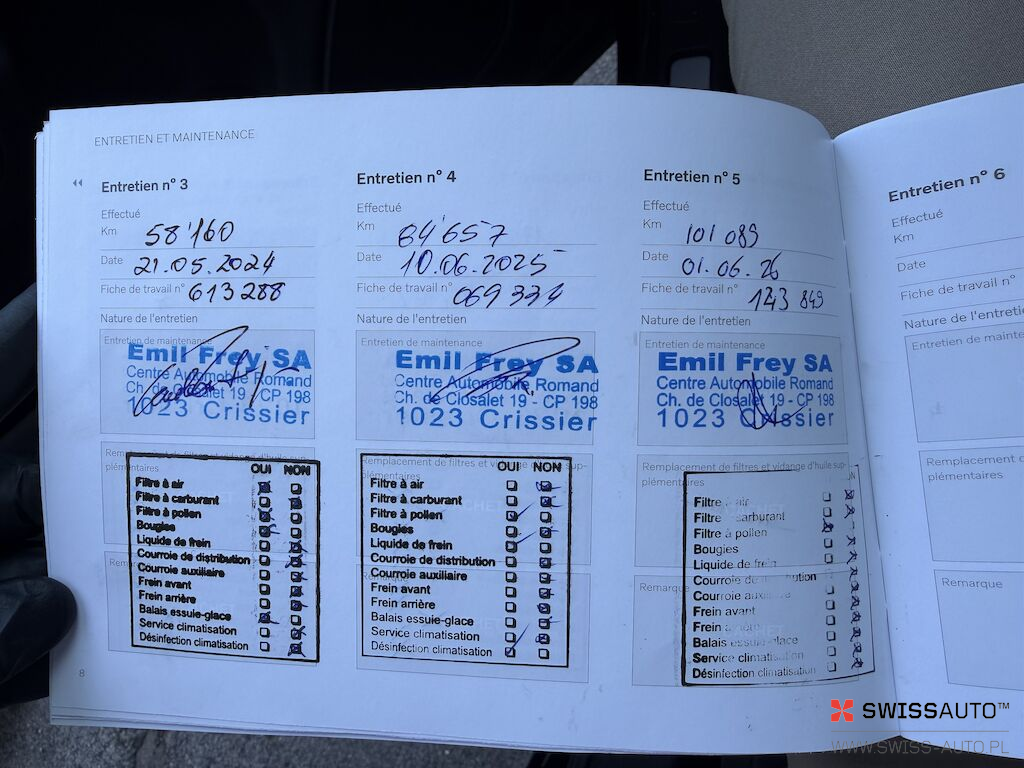 ENTRETIEN ET MAINTENANCE
Entretien n° 3
Effectué
Km 58'160
Date 21.05.2024
Fiche de travail n° 613288
Nature de l'entretien
Entretien de maintenance
Emil Frey SA
Centre Automobile Romand
Ch. de Closalet 19 - CP 198
1023 Crissier
Remplacement de filtres et vidange d'huile sup-
plémentaires
OUI NON
Filtre à air
Filtre à carburant
Filtre à pollen
Bougies
Liquide de frein
Courroie de distribution
Courroie auxiliaire
Frein avant
Frein arrière
Balais essuie-glace
Service climatisation
Désinfection climatisation
8
Entretien n° 4
Effectué
Km 84'657
Date 10.06.2025
Fiche de travail n° 069334
Nature de l'entretien
Entretien de maintenance
Emil Frey SA
Centre Automobile Romand
Ch. de Closalet 19 - CP 198
1023 Crissier
Remplacement de filtres et vidange d'huile sup-
plémentaires
OUI NON
Filtre à air
Filtre à carburant
Filtre à pollen
Bougies
Liquide de frein
Courroie de distribution
Courroie auxiliaire
Frein avant
Frein arrière
Balais essuie-glace
Service climatisation
Désinfection climatisation
Remarque
Entretien n° 5
Effectué
Km 101 089
Date 01.06.26
Fiche de travail n° 143 849
Nature de l'entretien
Entretien de maintenance
Emil Frey SA
Centre Automobile Romand
Ch. de Closalet 19 - CP 198
1023 Crissier
Remplacement de filtres et vidange d'huile sup-
plémentaires
Filtre à air
Filtre à carburant
Filtre à pollen
Bougies
Liquide de frein
Courroie de distribution
Courroie auxiliaire
Frein avant
Frein arrière
Balais essuie-glace
Service climatisation
Désinfection climatisation
Entretien n° 6
Effectué
Km
Date
Fiche de travail n°
Nature de l'entretien
Entretien de
Remplacement
plémentaires
Remarque
SWISSAUTO™
WWW.SWISS-AUTO.PL